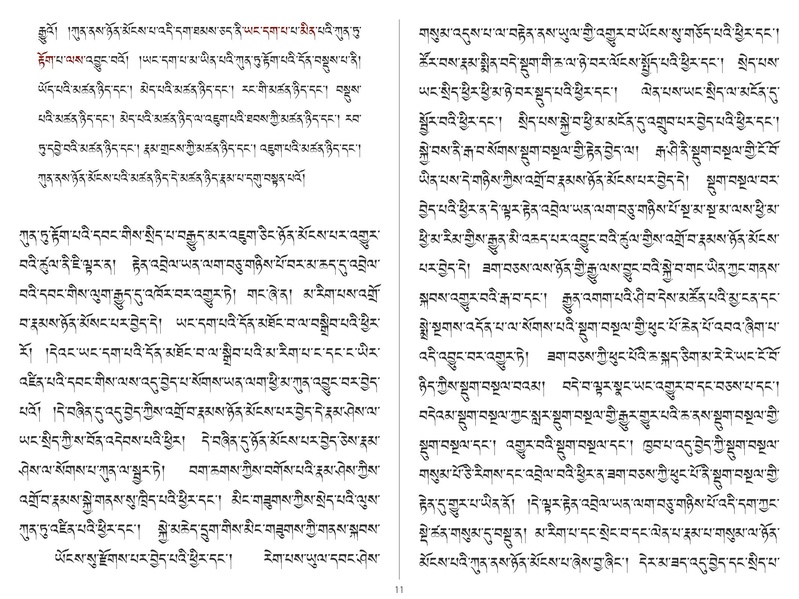 རྒྱུའོ། །ཀུན་ནས་ཉོན་མོངས་པ་འདི་དག་ཐམས་ཅད་ནི་ཡང་དག་པ་མིན་པའི་ཀུན་ཏུ་
རྟོག་པ་ལས་འབྱུང་བའོ། །ཡང་དག་པ་མ་ཡིན་པའི་ཀུན་ཏུ་རྟོག་པའི་དོན་བསྡུས་པ་ནི།
ཡོད་པའི་མཚན་ཉིད་དང་། མེད་པའི་མཚན་ཉིད་དང་། རང་གི་མཚན་ཉིད་དང་། བསྡུས་
པའི་མཚན་ཉིད་དང་། མེད་པའི་མཚན་ཉིད་ལ་འཇུག་པའི་ཐབས་ཀྱི་མཚན་ཉིད་དང་། རབ་
ཏུ་དབྱེ་བའི་མཚན་ཉིད་དང་། རྣམ་གྲངས་ཀྱི་མཚན་ཉིད་དང་། འཇུག་པའི་མཚན་ཉིད་དང་།
ཀུན་ནས་ཉོན་མོངས་པའི་མཚན་ཉིད་དེ་མཚན་ཉིད་རྣམ་པ་དགུ་བསྟན་པའོ།
ཀུན་ཏུ་རྟོག་པའི་དབང་གིས་སྲིད་པ་བརྒྱུད་མར་འཇུག་ཅིང་ཉོན་མོངས་པར་འགྱུར་
བའི་ཚུལ་ནི་ཇི་ལྟར་ན། རྟེན་འབྲེལ་ཡན་ལག་བཅུ་གཉིས་པོ་བར་མ་ཆད་དུ་འབྲེལ་
བའི་དབང་གིས་ལུག་རྒྱུད་དུ་འཁོར་བར་འགྱུར་ཏེ། གང་ཞེ་ན། མ་རིག་པས་འགྲོ་
བ་རྣམས་ཉོན་མོསང་པར་བྱེད་དེ། ཡང་དག་པའི་དོན་མཐོང་བ་ལ་བསྒྲིབ་པའི་ཕྱིར་
རོ། །དེའང་ཡང་དག་པའི་དོན་མཐོང་བ་ལ་སྒྲིབ་པའི་མ་རིག་པ་ང་དང་ང་ཡིར་
འཛིན་པའི་དབང་གིས་ལས་འདུ་བྱེད་པ་སོགས་ཡན་ལག་ཕྱི་མ་ཀུན་འབྱུང་བར་བྱེད་
པའོ། །དེ་བཞིན་དུ་འདུ་བྱེད་ཀྱིས་འགྲོ་བ་རྣམས་ཉོན་མོངས་པར་བྱེད་དེ་རྣམ་ཤེས་ལ་
ཡང་སྲིད་ཀྱི་ས་བོན་འདེབས་པའི་ཕྱིར། དེ་བཞིན་དུ་ཉོན་མོངས་པར་བྱེད་ཅེས་རྣམ་
ཤེས་ལ་སོགས་པ་ཀུན་ལ་སྦྱར་ཏེ། བག་ཆགས་ཀྱིས་བགོས་པའི་རྣམ་ཤེས་ཀྱིས་
འགྲོ་བ་རྣམས་སྐྱེ་གནས་སུ་ཁྲིད་པའི་ཕྱིར་དང་། མིང་གཟུགས་ཀྱིས་སྲིད་པའི་ལུས་
ཀུན་ཏུ་འཛིན་པའི་ཕྱིར་དང་། སྐྱེ་མཆེད་དྲུག་གིས་མིང་གཟུགས་ཀྱི་གནས་སྐབས་
ཡོངས་སུ་རྫོགས་པར་བྱེད་པའི་ཕྱིར་དང་། རེག་པས་ཡུལ་དབང་ཤེས་
གསུམ་འདུས་པ་ལ་བརྟེན་ནས་ཡུལ་གྱི་འགྱུར་བ་ཡོངས་སུ་གཅོད་པའི་ཕྱིར་དང་།
ཚོར་བས་རྣམ་སྨིན་བདེ་སྡུག་གི་ཆ་ལ་ཉེ་བར་ལོངས་སྤྱོད་པའི་ཕྱིར་དང་། སྲེད་པས་
ཡང་སྲིད་ཕྱིར་ཕྱི་མ་ཉེ་བར་སྡུད་པའི་ཕྱིར་དང་། ལེན་པས་ཡང་སྲིད་ལ་མངོན་དུ་
སྦྱོར་བའི་ཕྱིར་དང་། སྲིད་པས་སྐྱེ་བ་ཕྱི་མ་མངོན་དུ་འགྲུབ་པར་བྱེད་པའི་ཕྱིར་དང་།
སྐྱེ་བས་ནི་རྒ་བ་སོགས་སྡུག་བསྔལ་གྱི་རྟེན་བྱེད་ལ། རྒ་ཤི་ནི་སྡུག་བསྔལ་གྱི་ངོ་བོ་
ཡིན་པས་དེ་གཉིས་ཀྱིས་འགྲོ་བ་རྣམས་ཉོན་མོངས་པར་བྱེད་དེ། སྡུག་བསྔལ་བར་
བྱེད་པའི་ཕྱིར་ན་དེ་ལྟར་རྟེན་འབྲེལ་ཡན་ལག་བཅུ་གཉིས་པོ་སྔ་མ་སྔ་མ་ལས་ཕྱི་མ་
ཕྱི་མ་རིམ་གྱིས་རྒྱུན་མི་འཆད་པར་འབྱུང་བའི་ཚུལ་གྱིས་འགྲོ་བ་རྣམས་ཉོན་མོངས་
པར་བྱེད་དེ། ཟག་བཅས་ལས་ཉོན་གྱི་རྒྱུ་ལས་བྱུང་བའི་སྐྱེ་བ་གང་ཡིན་ཀྱང་གནས་
སྐབས་འགྱུར་བའི་རྒ་བ་དང་། རྒྱུན་འགག་པའི་ཤི་བ་དེས་མཚོན་པའི་མྱ་ངན་དང་
སྨྲེ་སྔགས་འདོན་པ་ལ་སོགས་པའི་སྡུག་བསྔལ་གྱི་ཕུང་པོ་ཆེན་པོ་འབའ་ཞིག་པ་
འདི་འབྱུང་བར་འགྱུར་ཏེ། ཟག་བཅས་ཀྱི་ཕུང་པོའི་ཆ་སྐད་ཅིག་མ་རེ་རེ་ཡང་ངོ་བོ་
ཉིད་ཀྱིས་སྡུག་བསྔལ་བའམ། བདེ་བ་ལྟར་སྣང་ཡང་འགྱུར་བ་དང་བཅས་པ་དང་།
བདེའམ་སྡུག་བསྔལ་ཀྱང་སླར་སྡུག་བསྔལ་གྱི་རྒྱུར་གྱུར་པའི་ཆ་ནས་སྡུག་བསྔལ་གྱི་
སྡུག་བསྔལ་དང་། འགྱུར་བའི་སྡུག་བསྔལ་དང་། ཁྱབ་པ་འདུ་བྱེད་ཀྱི་སྡུག་བསྔལ་
གསུམ་པོ་ཅི་རིགས་དང་འབྲེལ་བའི་ཕྱིར་ན་ཟག་བཅས་ཀྱི་ཕུང་པོ་ནི་སྡུག་བསྔལ་གྱི་
རྟེན་དུ་གྱུར་པ་ཡིན་ནོ། །དེ་ལྟར་རྟེན་འབྲེལ་ཡན་ལག་བཅུ་གཉིས་པོ་འདི་དག་ཀྱང་
སྡེ་ཚན་གསུམ་དུ་བསྡུ་ན། མ་རིག་པ་དང་སྲེད་པ་དང་ལེན་པ་རྣམ་པ་གསུམ་ལ་ཉོན་
མོངས་པའི་ཀུན་ནས་ཉོན་མོངས་པ་ཞེས་བྱ་ཞིང་། དེར་མ་ཟད་འདུ་བྱེད་དང་སྲིད་པ་
11